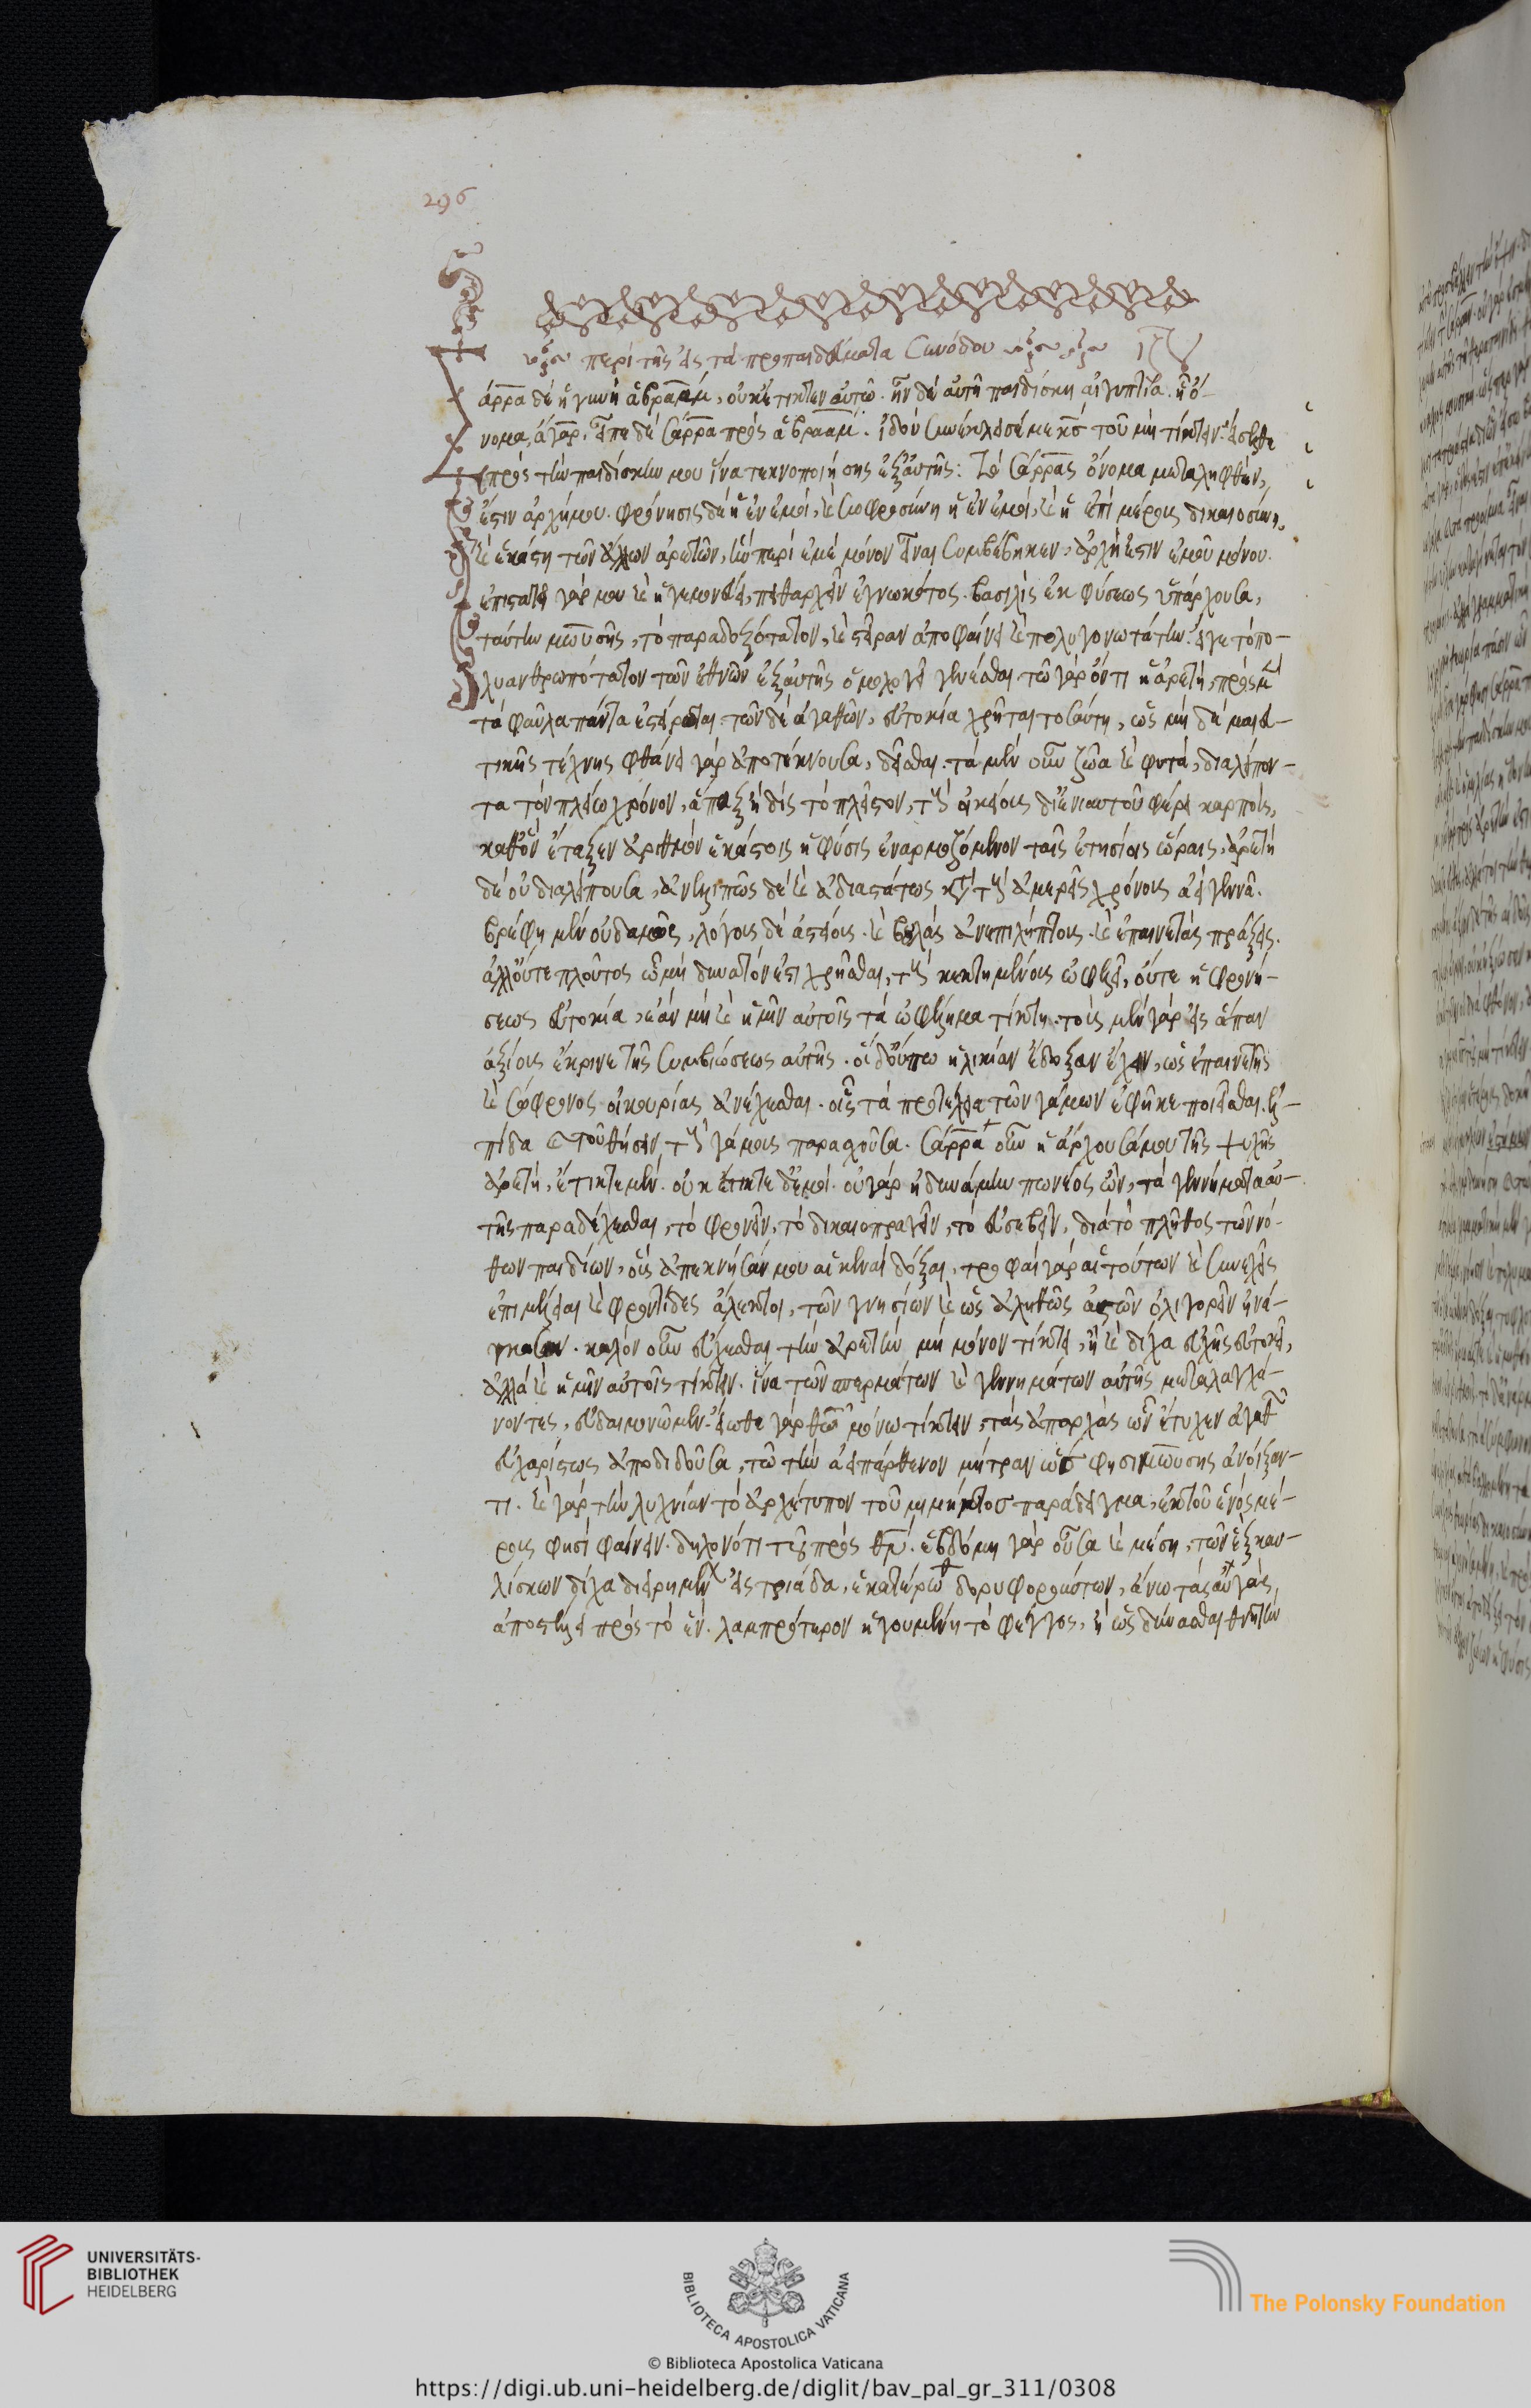 296
περὶ τῆς εἰς τὰ προπαιδεύματα συνόδου
άρρα δὲ ἡ γυνὴ ἀβραὰμ, οὐκ ἔτικτεν αὐτῶ. ἦν δὲ αὐτῆ παιδίσκη αἰγυπτία. ἧ ὄ-
νομα, ἄγαρ. εἶπε δὲ σάρρα πρὸς ἀβραάμ. ἰδοὺ συνέκλεισέ με κς τοῦ μὴ τίκτειν. εἴσελθε
πρὸς τὴν παιδίσκην μου ἵνα τεκνοποιήσης ἐξ αὐτῆς: Τὸ σάρρας ὄνομα μεταληφθὲν,
ἐστιν ἀρχή μου. φρόνησις δὲ ἡ ἐν ἐμοὶ, καὶ σωφροσύνη ἡ ἐν ἐμοὶ, καὶ ἡ ἐπὶ μέρους δικαιοσύνη,
καὶ ἑκάστη τῶν ἄλλων ἀρετῶν, ἣν περὶ ἐμὲ μόνον εἶναι συμβέβηκεν, ἀρχή ἐστιν ἐμοῦ μόνου.
ἐπιστατεῖ γάρ μου καὶ ἡγεμονεύει, πειθαρχεῖν ἐγνωκότος. βασιλὶς ἐκ φύσεως ὑπάρχουσα,
ταύτην μωυσῆς, τὸ παραδοξότατον, καὶ στεῖραν ἀποφαίνει καὶ πολυγονωτάτην. εἴγε τὸ πο-
λυανθρωπότατον τῶν ἐθνῶν ἐξ αὐτῆς ὁμολογεῖ γενέσθαι. τῶ γὰρ ὄντι ἡ ἀρετὴ, πρὸς μὲν
τὰ φαῦλα πάντα ἐστείρωται. τῶν δὲ ἀγαθῶν, εὐτοκία χρῆται τοσαύτη, ὡς μὴ δὲ μαιευ-
τικῆς τέχνης φθάνει γὰρ ἀποτέκνουσα, δεῖσθαι. τὰ μὲν οὖν ζῶα καὶ φυτὰ, διαλείπον-
τα τὸν πλείω χρόνον, ἅπαξ ἢ δὶς τὸ πλεῖστον, τοὺς οἰκείους δι' ἐνιαυτοῦ φέρει καρποὺς,
καθ' ὃν ἔταξεν ἀριθμὸν ἑκάστοις ἡ φύσις ἐναρμοζόμενον ταῖς ἐτησίοις ὥραις, ἀρετὴ
δὲ οὐ διαλείπουσα, ἀνελλιπῶς δὲ καὶ ἀδιαστάτως κατὰ τοὺς ἀμερεῖς χρόνους ἀεὶ γεννᾶ.
βρέφη μὲν οὐδαμῶς, λόγους δὲ ἀστείους. καὶ βουλὰς ἀνεπιλήπτους. καὶ ἐπαινετὰς πράξεις.
ἀλλ' οὔτε πλοῦτος ὧ μὴ δυνατόν ἐστι χρῆσθαι, τοὺς κεκτημένους ὠφελεῖ, οὔτε ἡ φρονή-
σεως εὐτοκία, ἐὰν μὴ καὶ ἡμῖν αὐτοῖς τὰ ὠφέλημα τίκτη. τοὺς μὲν γὰρ εἰς ἅπαν
ἀξίους ἔκρινε τῆς συμβιώσεως αὐτῆς. οἱ δ' οὔπω ἡλικίαν ἔδοξαν ἔχειν, ὡς ἐπαινετῆς
καὶ σώφρονος οἰκουρίας ἀνέχεσθαι. οἷς τὰ προτέλεια τῶν γάμων ἐφῆκε ποιεῖσθαι. ἐλ-
πίδα τοῦ θήσειν τοὺς γάμους παρασχοῦσα. σάρρα οὖν ἡ ἄρχουσά μου τῆς ψυχῆς
ἀρετὴ, ἔτικτε μὲν. οὐκ ἔτικτε δ' ἐμοί. οὐ γὰρ ἠδυνάμην πω νέος ὢν, τὰ γεννήματα αὐ-
τῆς παραδέχεσθαι, τὸ φρονεῖν, τὸ δικαιοπραγεῖν, τὸ εὐσεβεῖν, διὰ τὸ πλῆθος τῶν νό-
θων παιδίων, οὓς ἀπεκύησάν μου αἱ κεναὶ δόξαι, τροφαὶ γὰρ αἱ τούτων καὶ συνεχεῖς
ἐπιμέλειαι καὶ φροντίδες ἄληκτοι, τῶν γνησίων καὶ ὡς ἀληθῶς ἀστῶν ὀλιγορεῖν ἠνά-
γκασαν. καλὸν οὖν εὔχεσθαι τὴν ἀρετὴν μὴ μόνον τίκτει, ἣ καὶ δίχα εὐχῆς εὐτοκεῖ,
ἀλλὰ καὶ ἡμῖν αὐτοῖς τίκτειν. ἵνα τῶν σπερμάτων καὶ γεννημάτων αὐτῆς μεταλαγχά-
νοντες, εὐδαιμονῶμεν. εἴωθε γὰρ θεῶ μόνω τίκτειν, τὰς ἀπαρχὰς ὧν ἔτυχεν ἀγαθῶν
εὐχαρίστως ἀποδιδοῦσα, τῶ τὴν ἀειπάρθενον μήτραν ὥς φησι μωυσῆς ἀνοίξαν-
τι. καὶ γὰρ τὴν λυχνίαν τὸ ἀρχέτυπον τοῦ μιμήματος παράδειγμα, ἐκ τοῦ ἑνὸς μέ-
ρους φησὶ φαίνειν. δηλονότι τοῦ πρὸς θν. ἑβδόμη γὰρ οὖσα καὶ μέση, τῶν ἓξ καυ-
λίσκων δίχα διηρημένων εἰς τριάδα, ἑκατέρωθεν δορυφορούντων, ἄνω τὰς αὐγὰς
ἀποστέλλει πρὸς τὸ ἕν. λαμπρότερον ἡγουμένη τὸ φέγγος, ἢ ὡς δύνασθαι θνητὴν
UNIVERSITÄTS-
BIBLIOTHEK
HEIDELBERG
BIBLIOTECA APOSTOLICA VATICANA
The Polonsky Foundation
© Biblioteca Apostolica Vaticana
https://digi.ub.uni-heidelberg.de/diglit/bav_pal_gr_311/0308